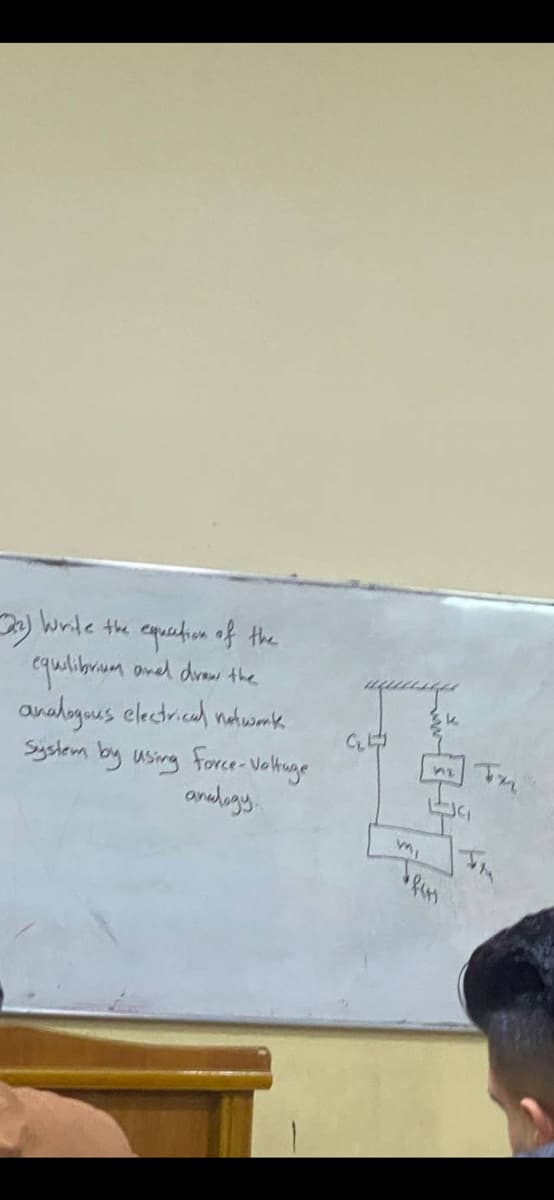 Q2) Write the equation of the
equilibrium and draw the
analogous electrical network
System by using Force-Voltage
analogy.
k
C2
m2
x2
C1
m1
x1
f(t)